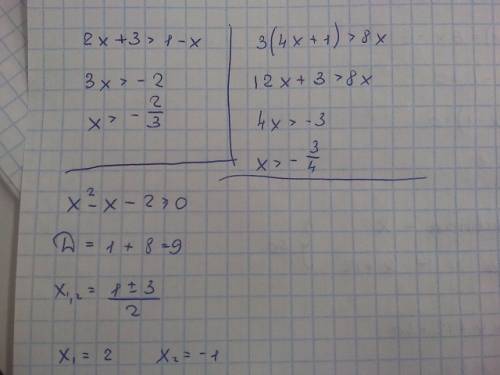 2x+3>1-x
3x>-2
x>-2/3
3(4x+1)>8x
12x+3>8x
4x>-3
x>-3/4
x²-x-2≥0
D=1+8=9
x₁,₂=(1±3)/2
x₁=2 x₂=-1